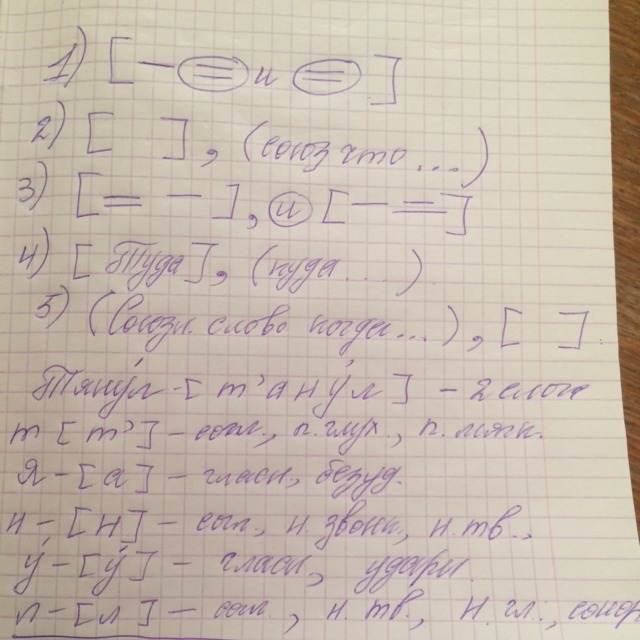 1) [ — = и = ]
2) [ ], (союз что ...)
3) [ = — ], и [ — = ]
4) [ Туда ], (куда ....)
5) (Союзн. слово когда...), [ ].
Тяну́л - [ т'ану́л ] - 2 слога
т [т'] - согл., п. глух., п. мягк.
Я - [а] - гласн., безуд.
н - [н] - согл., н. звонк., н. тв.,
у́ - [у́] - гласн., ударн.
л - [л] - согл., н. тв., н. гл., сонор